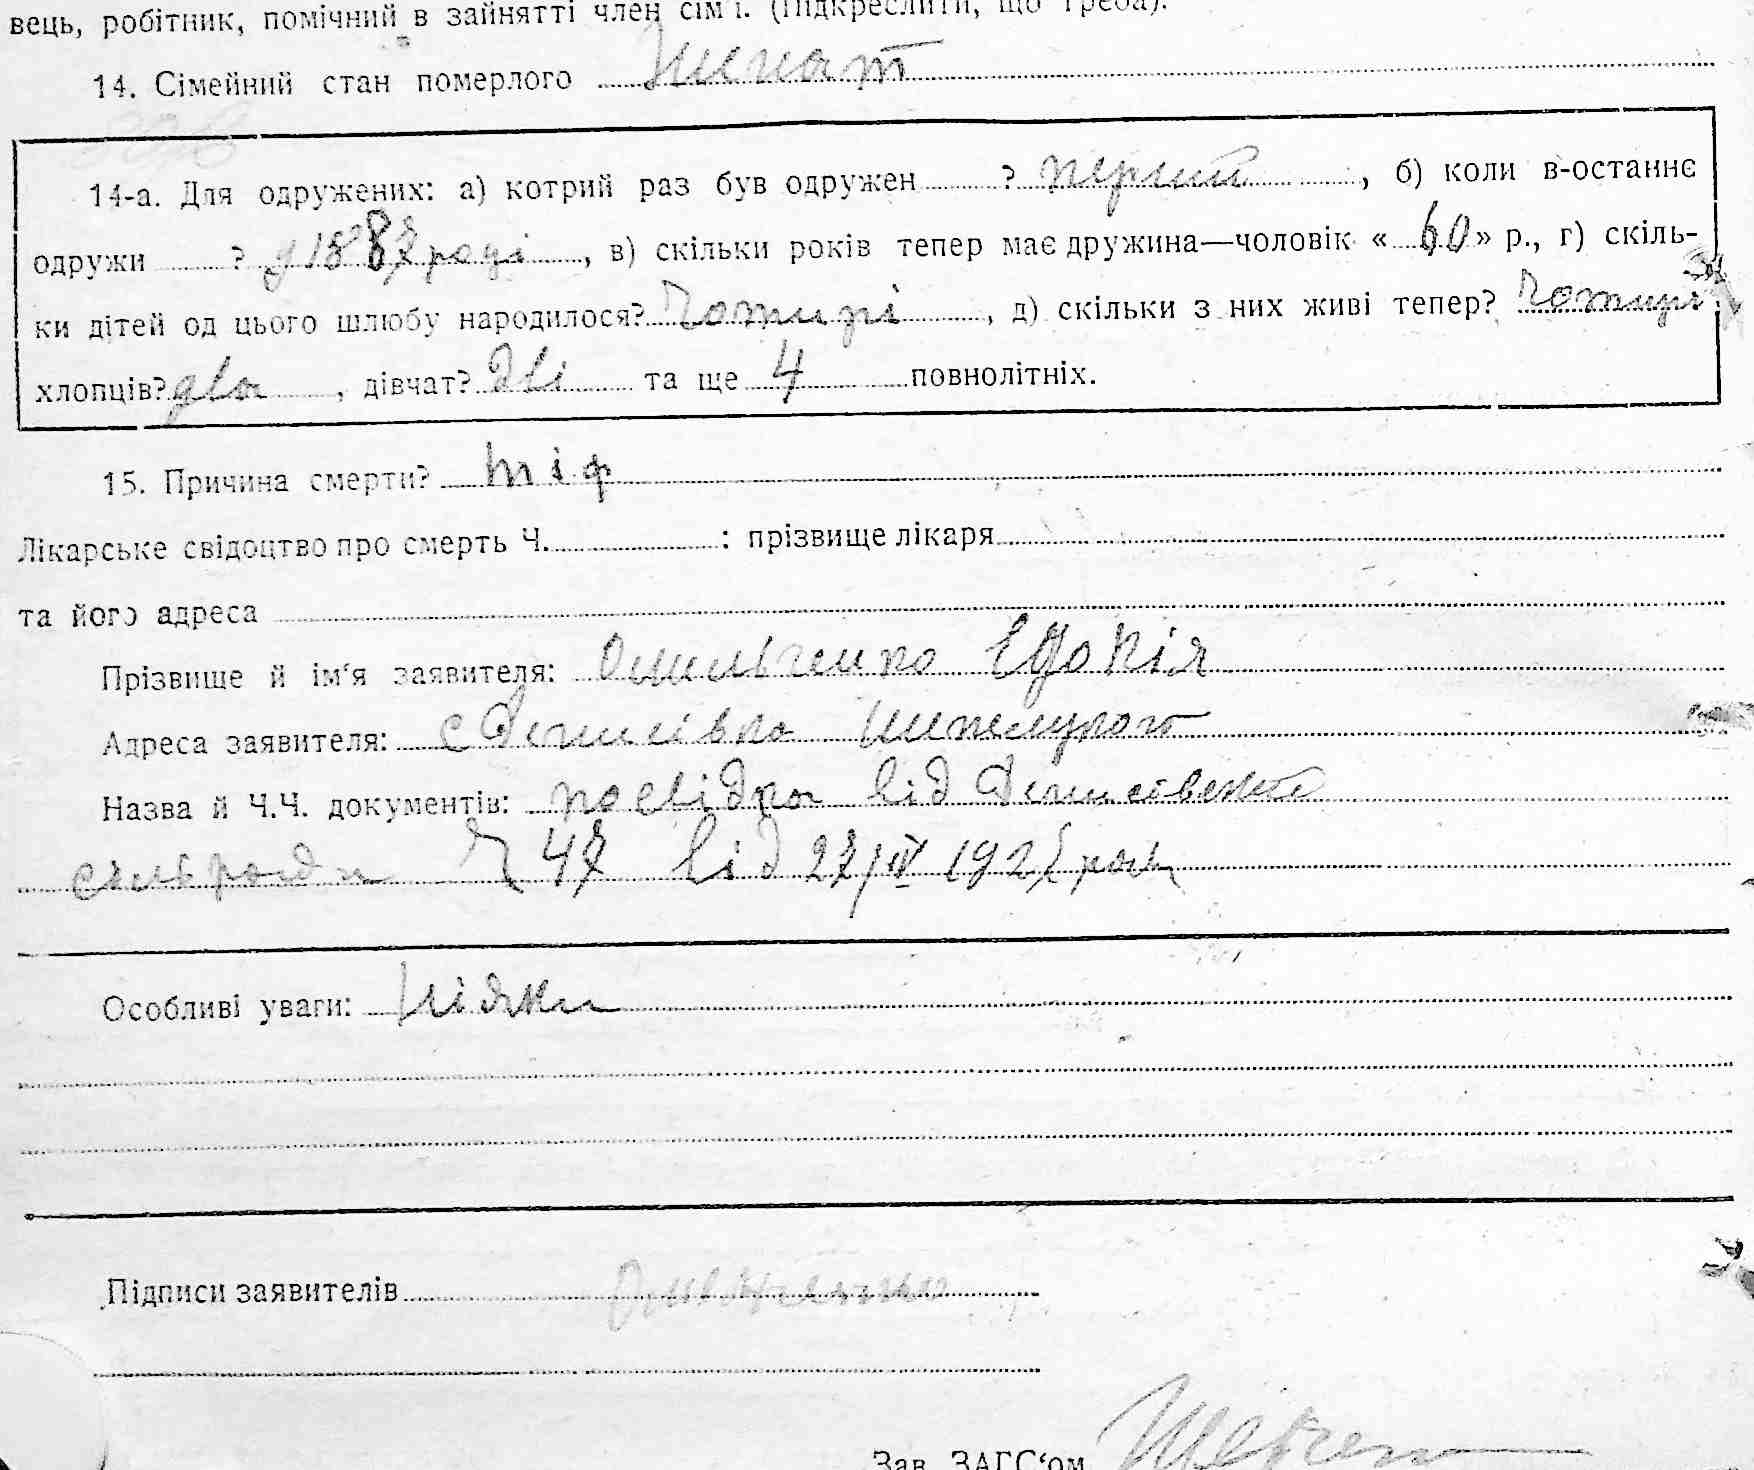 вець, робітник, помічний в зайнятті член сім'ї. (Підкреслити, що треба).
14. Сімейний стан померлого Жинат
14-а. Для одружених: а) котрий раз був одружен ? перший , б) коли в-останнє
одружи ? у 1887 році , в) скільки років тепер має дружина—чоловік « 60 » р., г) скіль-
ки дітей од цього шлюбу народилося? Чотирі , д) скільки з них живі тепер? Чотирі
хлопців? два , дівчат? Дві та ще 4 повнолітніх.
15. Причина смерти? тіф
Лікарське свідоцтво про смерть Ч. : прізвище лікаря
та його адреса
Прізвище й ім'я заявителя: Омельченко Євдокія
Адреса заявителя: с Денисівка
Назва й Ч.Ч. документів: посвідка від Денисівської
сільради Ч 47 від 27/IV 1927 року
Особливі уваги: Ніяки
Підписи заявителів
Зав. ЗАГС'ом